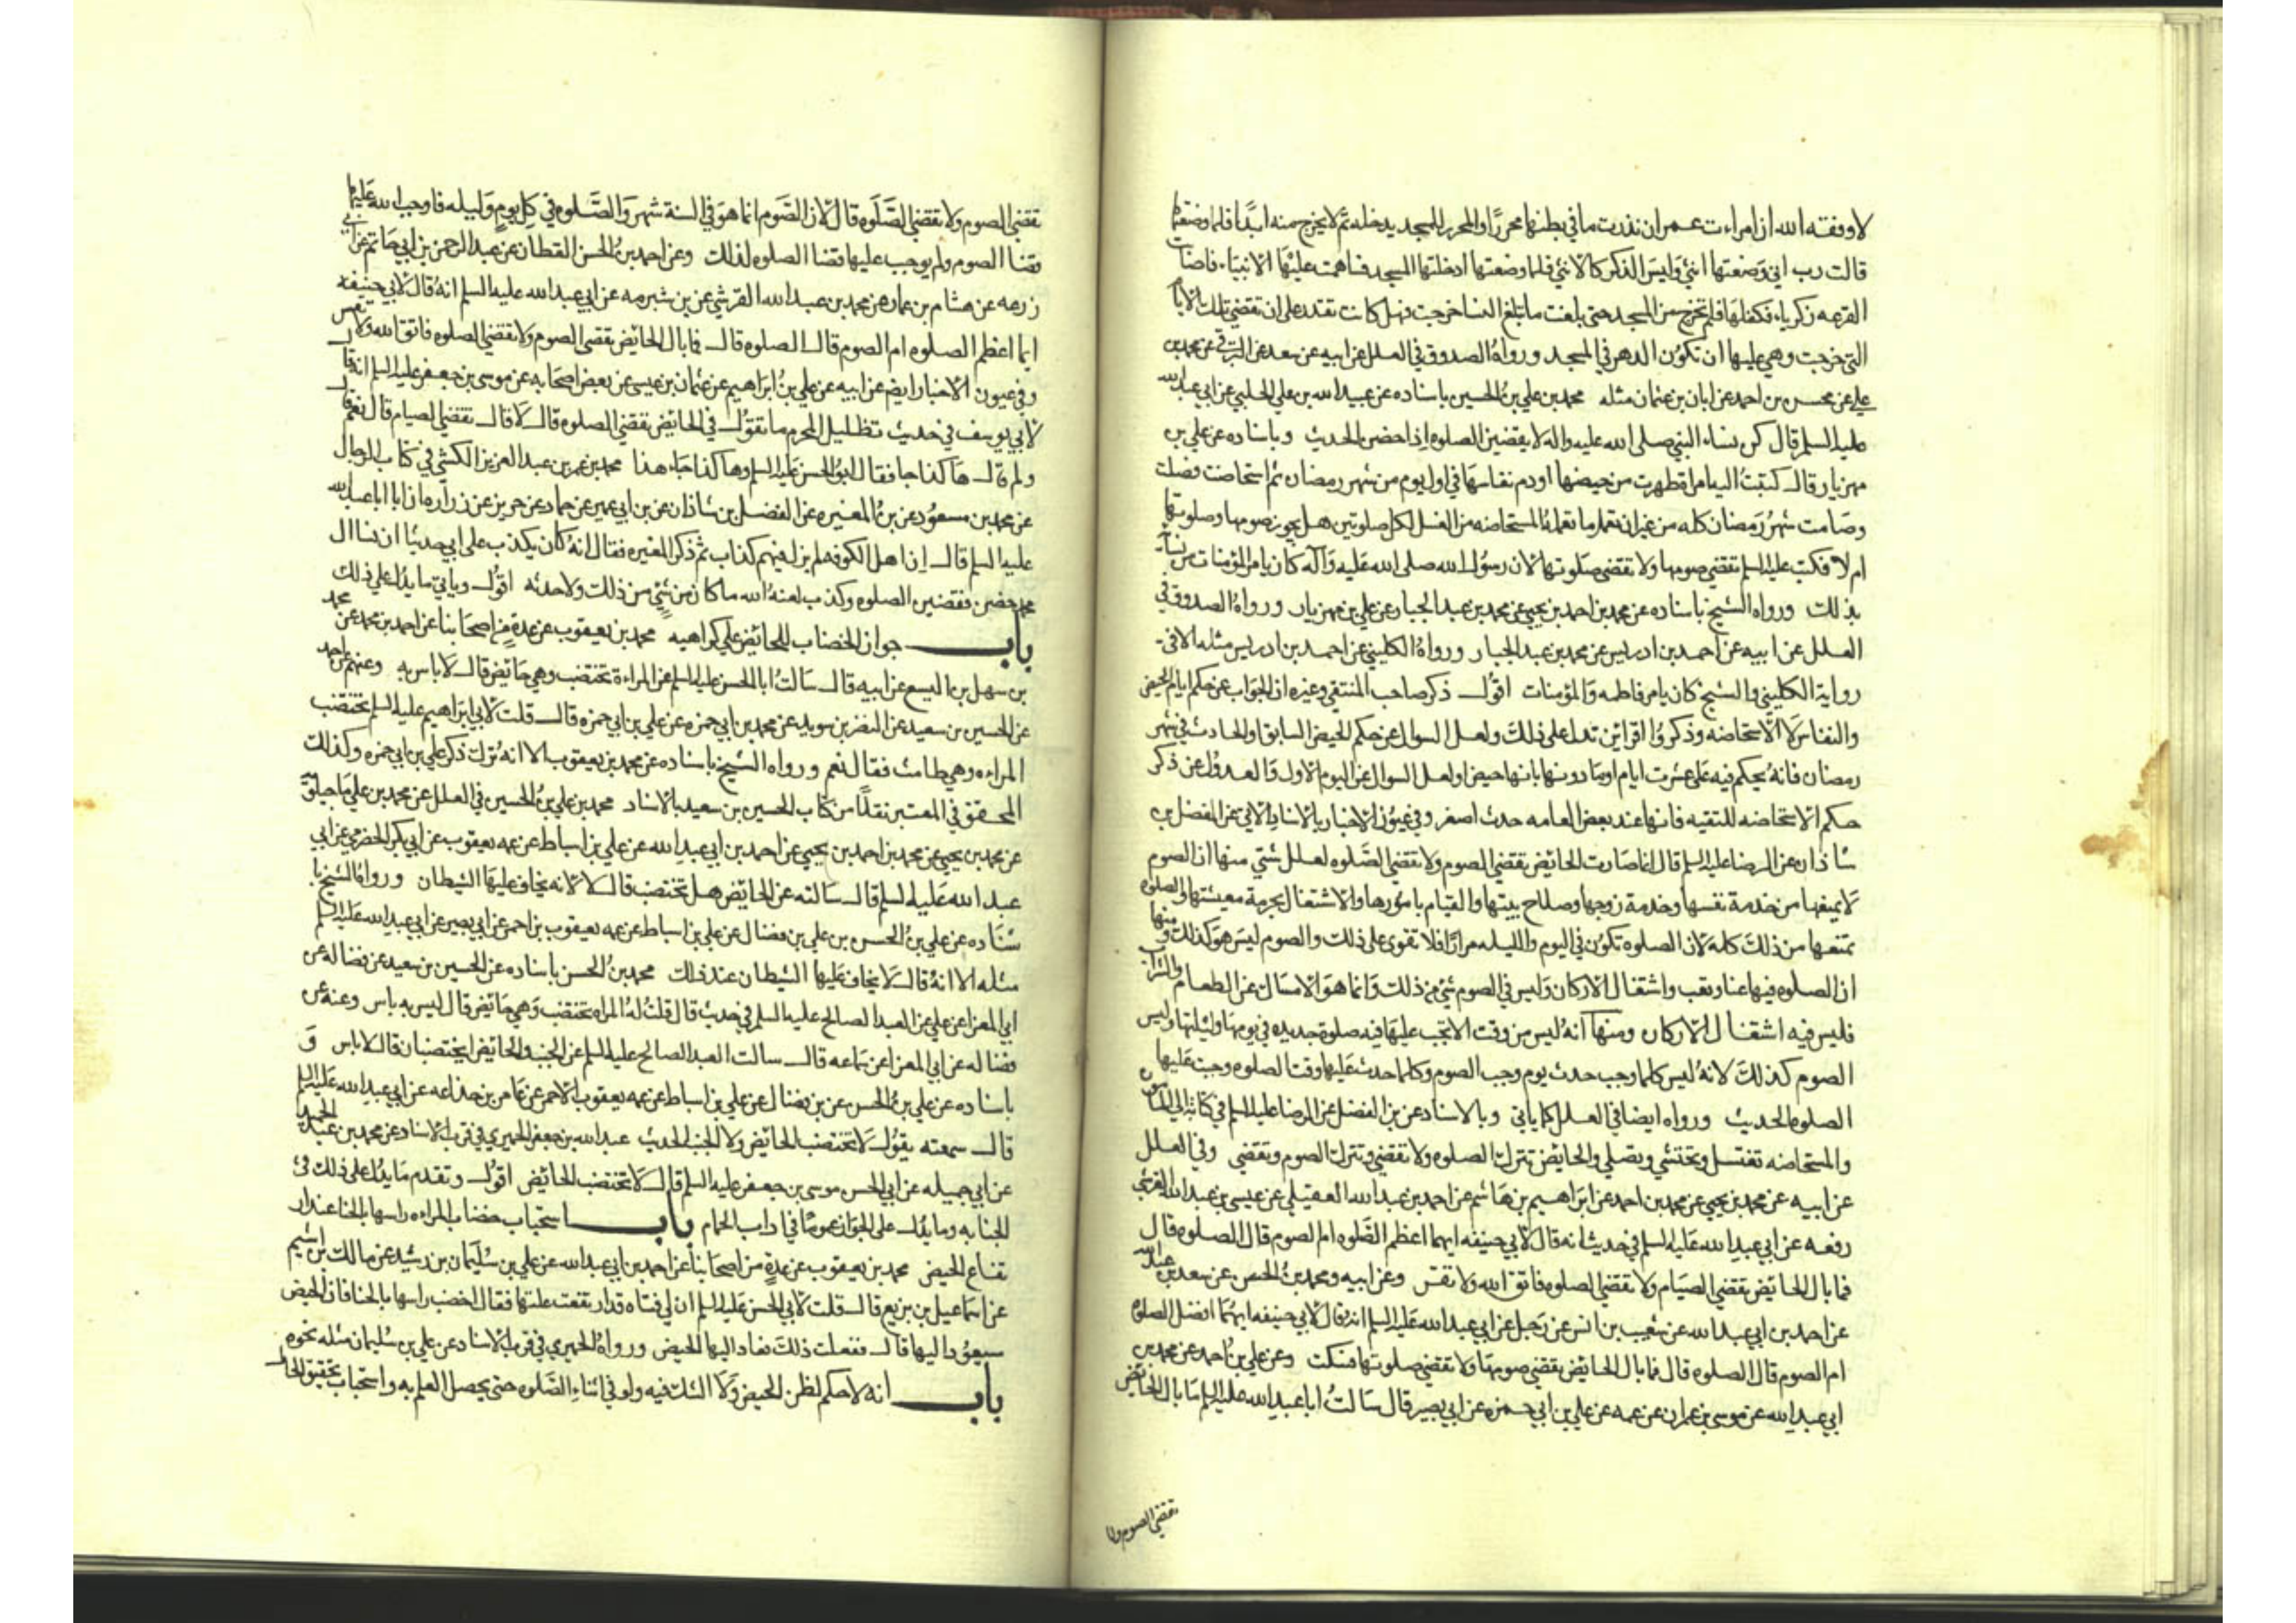 لا وفقه الله ان امراءت عمران نذرت ما في بطنها محررًا والمحرر للمسجد يدخله ثم لا يخرج منه ابدًا فلما وضعتها
قالت رب اني وضعتها انثي وليس الذكر كالانثي فلما وضعتها ادخلتها المسجد فساهمت عليها الانبياء فاصابت
القرعه زكرياء فكفلها فلم تخرج من المسجد حتى بلغت ما تبلغ النسا خرجت فهل كانت تقدر على ان تقضي تلك الايام
التي خرجت وهي عليها ان تكون الدهر في المسجد ورواه الصدوق في العلل عن ابيه عن سعد عن البرقي عن محمد بن
علي عن محسن بن احمد عن ابان بن عثمان مثله محمد بن علي بن الحسين باسناده عن عبيد الله بن علي الحلبي عن ابي عبد الله
عليه السلم قال كن نساء النبي صلى الله عليه واله لا يقضين الصلوه اذا حضن الحديث وباسناده عن علي بن
مهزيار قال كتبت اليه امراة طهرت من حيضها او دم نفاسها في اول يوم من شهر رمضان ثم استحاضت فصلت
وصامت شهر رمضان كله من غير ان تعمل ما تعمله المستحاضه من الغسل لكل صلوتين هل يجوز صومها وصلوتها
ام لا فكتب عليه السلم تقضي صومها ولا تقضي صلوتها لان رسول الله صلى الله عليه وآله كان يامر المؤمنات من نسائه
بذلك ورواه الشيخ باسناده عن محمد بن احمد بن يحيي عن محمد بن عبد الجبار عن علي بن مهزيار ورواه الصدوق في
العلل عن ابيه عن احمد بن ادريس عن محمد بن عبد الجبار ورواه الكليني عن احمد بن ادريس مثله الا في
رواية الكليني والشيخ كان يامر فاطمه والمؤمنات اقول ذكر صاحب المنتقي وغيره ان الجواب عن حكم ايام الحيض
والنفاس لا الاستحاضه وذكروا قرائن تدل على ذلك ولعل السوال عن حكم الحيض السابق والحادث في شهر
رمضان فانه يحكم فيه على عشرت ايام او ما دونها بانها حيض او لعل السوال عن اليوم الاول والعدول عن ذكر
حكم الاستحاضه للتقيه فانها عند بعض العامه حدث اصغر وفي عيون الاخبار بالاسناد الاتي عن الفضل بن
شاذان عن الرضا عليه السلم قال انما صارت الحائض تقضي الصوم ولا تقضي الصلوه لعلل شتي منها ان الصوم
لا يمنعها من خدمة نفسها وخدمة زوجها وصلاح بيتها والقيام بامورها والاشتغال بمرمة معيشتها والصلوه
تمنعها من ذلك كله لان الصلوه تكون في اليوم والليله مرارًا فلا تقوى على ذلك والصوم ليس هو كذلك ومنها
ان الصلوه فيها عنا وتعب واشتغال الاركان وليس في الصوم شئ من ذلك وانما هو الامساك عن الطعام والشراب
فليس فيه اشتغال الاركان ومنها انه ليس من وقت الا تجب عليها فيه صلوة جديده في يومها وليلتها وليس
الصوم كذلك لانه ليس كلما وجب حدث يوم وجب الصوم وكلما حدث عليها وقت الصلوه وجبت عليها
الصلوه الحديث ورواه ايضا في العلل كما ياتي وبالاسناد عن بن الفضل عن الرضا عليه السلم في كتابه الي المامون
والمستحاضه تغتسل وتحتشي وتصلي والحائض تترك الصلوه ولا تقضي وتترك الصوم وتقضي وفي العلل
عن ابيه عن محمد بن يحيي عن محمد بن احمد عن ابراهيم بن هاشم عن احمد بن عبد الله العقيلي عن عيسي بن عبد الله القرشي
رفعه عن ابي عبد الله عليه السلم في حديث انه قال لابي حنيفه ايهما اعظم الصلوه ام الصوم قال الصلوه قال
فما بال الحائض تقضي الصيام ولا تقضي الصلوه فاتق الله ولا تقس وعن ابيه ومحمد بن الحسن عن سعد بن عبد الله
عن احمد بن ابي عبد الله عن شعيب بن انس عن رجل عن ابي عبد الله عليه السلم انه قال لابي حنيفه ايهما افضل الصلوه
ام الصوم قال الصلوه قال فما بال الحائض تقضي صومها ولا تقضي صلوتها فسكت وعن علي بن احمد عن محمد بن
ابي عبد الله عن موسى بن عمران عن عمه عن علي بن ابي حمزه عن ابي بصير قال سالت ابا عبد الله عليه السلم ما بال الحائض
تقضي الصوم ولا
تقضي الصوم ولا تقضي الصلوه قال لان الصوم انما هو في السنة شهر والصلوه في كل يوم وليله فاوجب الله عليها
قضا الصوم ولم يوجب عليها قضا الصلوه لذلك وعن احمد بن الحسن القطان عن عبد الرحمن بن ابي حاتم عن ابي
زرعه عن هشام بن عمار عن محمد بن عبد الله القرشي عن بن شبرمه عن ابي عبد الله عليه السلم انه قال لابي حنيفه
ايما اعظم الصلوه ام الصوم قال الصلوه قال فما بال الحائض تقضي الصوم ولا تقضي الصلوه فاتق الله ولا تقس
وفي عيون الاخبار ايضا عن ابيه عن علي بن ابراهيم عن عثمان بن عيسى عن بعض اصحابه عن موسى بن جعفر عليه السلم انه قال
لابي يوسف في حديث تظليل المحرم ما تقول في الحائض تقضي الصلوه قال لا قال تقضي الصيام قال نعم قال
ولم قال هاكذا جا فقال ابو الحسن عليه السلم وهاكذا جاء هذا محمد بن عمر بن عبد العزيز الكشي في كتاب الرجال
عن محمد بن مسعود عن بن المغيره عن الفضل بن شاذان عن بن ابي عمير عن حماد عن حريز عن زراره ان ابا عبد الله
عليه السلم قال ان اهل الكوفه لم يزل فيهم كذاب ثم ذكر المغيره فقال انه كان يكذب على ابي حديثا ان نسا ال
محمد حضن فقضين الصلوه وكذب لعنه الله ما كان من شئ من ذلك ولا حدثه اقول وياتي ما يدل على ذلك
باب جواز الخضاب للحائض على كراهيه محمد بن يعقوب عن عدة من اصحابنا عن احمد بن محمد عن محمد
بن سهل بن اليسع عن ابيه قال سالت ابا الحسن عليه السلم عن المراءة تختضب وهي حائض قال لا باس به وعنهم عن احمد
عن الحسين بن سعيد عن النضر بن سويد عن محمد بن ابي حمزه عن علي بن ابي حمزه قال قلت لابي ابراهيم عليه السلم تختضب
المراءه وهي طامث فقال نعم ورواه الشيخ باسناده عن محمد بن يعقوب الا انه ترك ذكر علي بن ابي حمزه وكذلك
المحقق في المعتبر نقلًا من كتاب الحسين بن سعيد بالاسناد محمد بن علي بن الحسين في العلل عن محمد بن علي ماجيلويه
عن محمد بن يحيي عن محمد بن احمد بن يحيي عن احمد بن ابي عبد الله عن علي بن اسباط عن عمه يعقوب عن ابي بكر الحضرمي عن ابي
عبد الله عليه السلم قال سالته عن الحائض هل تختضب قال لا لانه يخاف عليها الشيطان ورواه الشيخ با
سناده عن علي بن الحسن بن علي بن فضال عن علي بن اسباط عن عمه يعقوب بن احمر عن ابي بصير عن ابي عبد الله عليه السلم
مثله الا انه قال لا يخاف عليها الشيطان عند ذلك محمد بن الحسن باسناده عن الحسين بن سعيد عن فضاله عن
ابي المعزا عن علي عن العبد الصالح عليه السلم في حديث قال قلت له المراه تختضب وهي حائض قال ليس به باس وعنه عن
فضاله عن ابي المعزا عن سماعه قال سالت العبد الصالح عليه السلم عن الجنب والحائض ايختضبان قال لا باس و
باسناده عن علي بن الحسن عن بن فضال عن علي بن اسباط عن عمه يعقوب الاحمر عن عامر بن جذاعه عن ابي عبد الله عليه السلم
قال سمعته يقول لا تختضب الحائض ولا الجنب الحديث عبد الله بن جعفر الحميري في قرب الاسناد عن محمد بن عبد الحميد
عن ابي جميله عن ابي الحسن موسى بن جعفر عليه السلم قال لا تختضب الحائض اقول وتقدم ما يدل على ذلك في
الجنابه وما يدل على الجواز عمومًا في اداب الحمام باب استحباب خضاب المراءه راسها بالحنا عند ار
تفاع الحيض محمد بن يعقوب عن عدة من اصحابنا عن احمد بن ابي عبد الله عن علي بن سليمان بن رشيد عن مالك بن اشيم
عن اسماعيل بن بزيع قال قلت لابي الحسن عليه السلم ان لي فتاه قد ارتفعت علتها فقال اخضب راسها بالحنا فان الحيض
سيعود اليها قال ففعلت ذلك فعاد اليها الحيض ورواه الحميري في قرب الاسناد عن علي بن سليمان مثله نحوه
باب انه لا حكم لظن الحيض ولا الشك فيه ولو في اثناء الصلوه حتى يحصل العلم به واستحباب تحقيق الحال